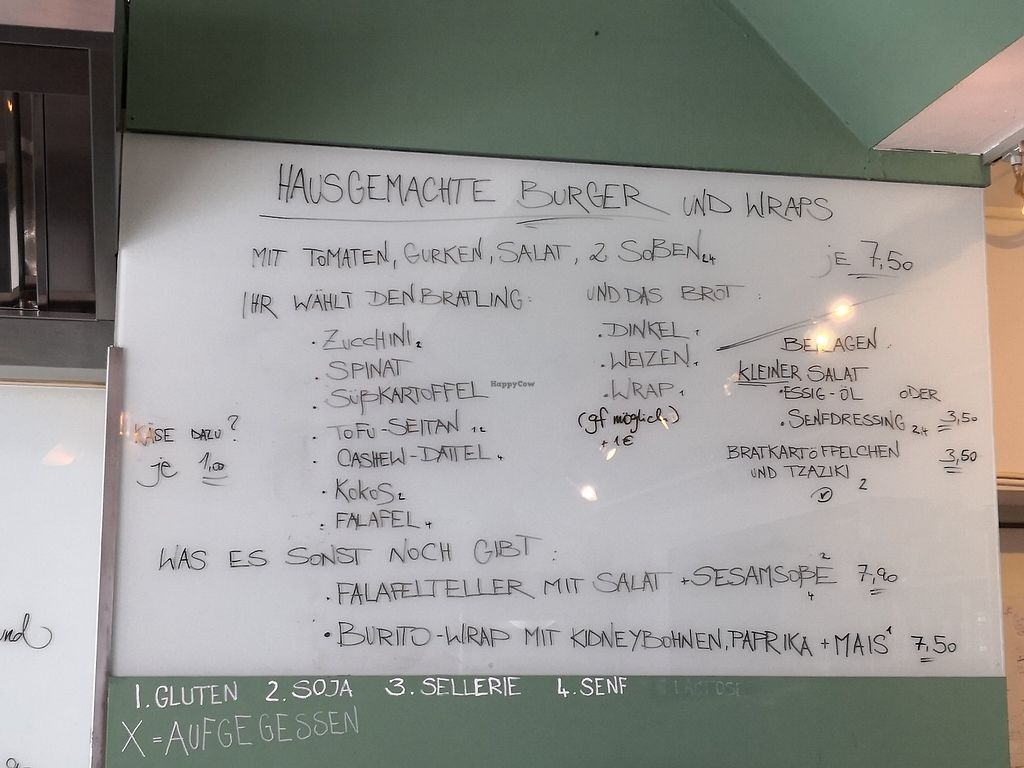 HAUSGEMACHTE BURGER UND WRAPS
MIT TOMATEN, GURKEN, SALAT, 2 SOßEN 2,4
JE 7,50
IHR WÄHLT DEN BRATLING:
· ZUCCHINI 2
· SPINAT
· SÜßKARTOFFEL
· TOFU-SEITAN 1,2
· CASHEW-DATTEL 4
· KOKOS 2
· FALAFEL 4
UND DAS BROT:
· DINKEL 1
· WEIZEN 1
· WRAP 1
(gf möglich)
+1€
KÄSE DAZU?
je 1,00
BEILAGEN:
KLEINER SALAT
· ESSIG-ÖL ODER
· SENFDRESSING 2,4 3,50
BRATKARTOFFELCHEN 3,50
UND TZAZIKI 2
HappyCow
WAS ES SONST NOCH GIBT:
· FALAFELTELLER MIT SALAT + SESAMSOßE 2 4 7,90
· BURITO-WRAP MIT KIDNEYBOHNEN, PAPRIKA + MAIS 1 7,50
1. GLUTEN 2. SOJA 3. SELLERIE 4. SENF
X = AUFGEGESSEN